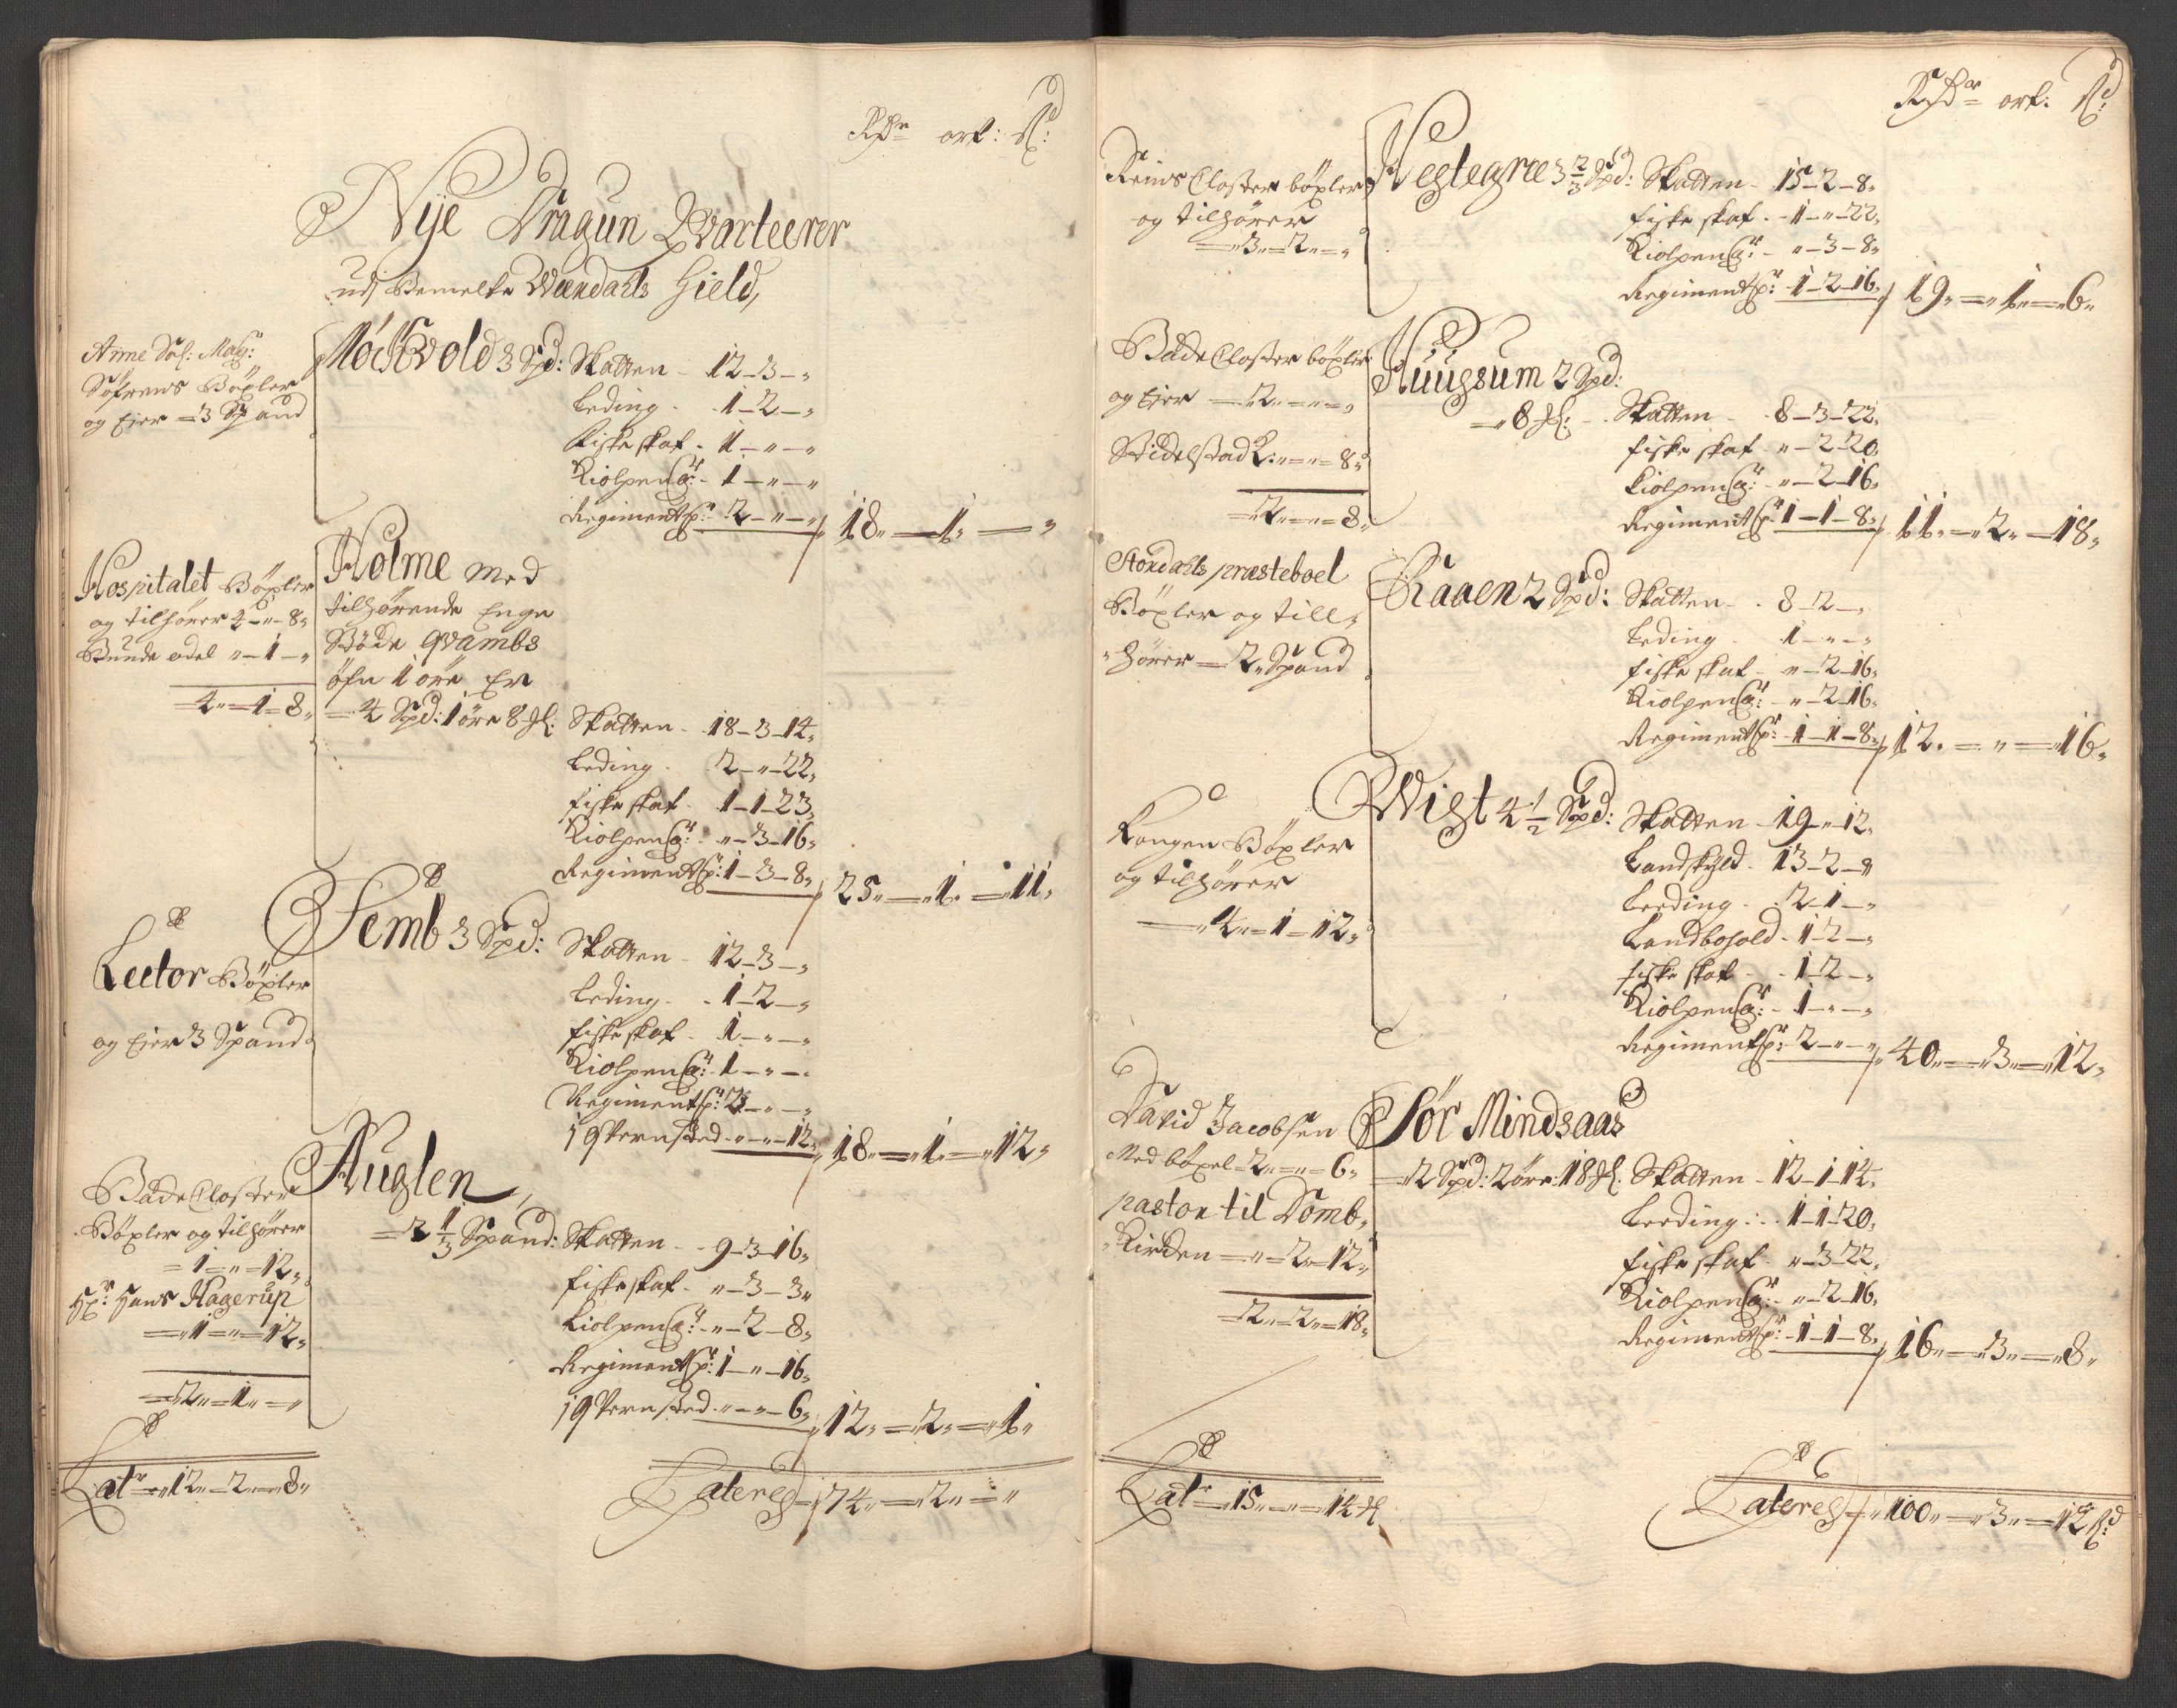 Rdr ort: ß:
Nye Dragun Qvarteerer
udj Bemelte Værdahls Gield,
Anne Sal: Mag:
Søfrens Böxler
og Ejer = 3 Spand
Möchvold 3 Spd: Skatten - 12 - 3 - "
Leding - 1 - 2 - "
Fiskeskat - 1 - " - "
Kiolpeng: - 1 - " - "
Regimentsp: - 2 - " - " 18 " = 1 " = "
Hospitalet Böxler
og tilhører 4 - " - 8 "
Bunde odel " - 1 - "
4 " = 1 - 8 "
Holme med
tilhørende Enge
Bøde Qvambs
øfre 1 øre Er
= 4 Spd: 1 øre 8 Ml: Skatten - 18 - 3 - 14 "
Leding - 2 - " - 22 "
fiskeskat - 1 - 1 - 23 "
Kiolpeng: " - 3 - 16 "
Regimentsp: 1 - 3 - 8 " 25 " = 1 " = 11 "
Lector Böxler
og Ejer 3 Spand
Semb 3 Spd: Skatten - 12 - 3 - "
Leding - 1 - 2 - "
fiskeskat - 1 - " - "
Kiolpeng: - 1 - " - "
Regimentsp: 2 - " - "
" - " - 12 " 18 " = 1 " = 12 "
Bade Closter
Böxler og tilhører
= 1 = " = 12 "
Hr: Hans Hagerup
= 1 = " = 12 "
= 2 " = 1 " = "
Auglen
= 2 1/3 Spand: Skatten - 9 - 3 - 16 "
fiskeskat - " - 3 - 3 "
Kiolpeng: - " - 2 - 8 "
Regimentsp: 1 - " - 16 "
" - " - 6 " 12 " = 2 " = 1 "
Latr = 12 " - 2 " = 8 "
Lateres = 74 " = 2 " = "
Rdr ort: ß:
Reins Closter böxler
og tilhører
= 3 " = 2 " = "
Vegtegree 3 2/3 Spd: Skatten - 15 - 2 - 8 "
fiskeskat - 1 - " - 22 "
Kiolpeng: - " - 3 - 8 "
Regimentsp: 1 - 2 - 16 " 19 " = 1 " = 6 "
Bade Closter böxler
og Ejer = 2 " = " = "
" = " = 8 "
= 2 " = " = 8 "
Huugsum 2 Spd:
= 8 Ml: - Skatten - 8 - 3 - 22 "
fiskeskat " - 2 - 20 "
Kiolpeng: " - 2 - 16 "
Regimentsp: 1 - 1 - 8 " 11 " = 2 " = 18 "
Størdahls præsteboel
Böxler og till=
=hører = 2 " Spand
Raaen 2 Spd: Skatten - 8 - 2 - "
Leding - 1 - " - "
fiskeskat - " - 2 - 16 "
Kiolpeng: - " - 2 - 16 "
Regimentsp: - 1 - 1 - 8 " 12 " = " = 16 "
Kongen Böxler
og tilhører
= 4 " = 1 - 12 "
Wist 4 1/2 Spd: Skatten - 19 - " - 12 "
Landskyld - 13 - 2 - "
Leeding - 2 - 1 - "
Landbohold - 1 - 2 - "
fiskeskat - 1 - 2 - "
Kiolpeng: - 1 - " - "
Regimentsp: 2 - " - " 40 " = 3 " = 12 "
David Jacobsen
Med böxel = 2 " = " = 6 "
pastor til Domb=
=Kircken = " = 2 " = 12 "
= 2 " = 2 " = 18 "
Sör Mindsaas
= 2 Spd: 2 øre: 18 Ml: Skatten - 12 - 1 - 14 "
Leeding: - 1 - 1 - 20 "
fiskeskat - " - 3 - 22 "
Kiolpeng: - " - 2 - 16 "
Regimentsp: - 1 - 1 - 8 " 16 " = 3 " = 8 "
Latr = 15 " = " = 14 Ml
Lateres = 100 " = 3 " = 12 ß: